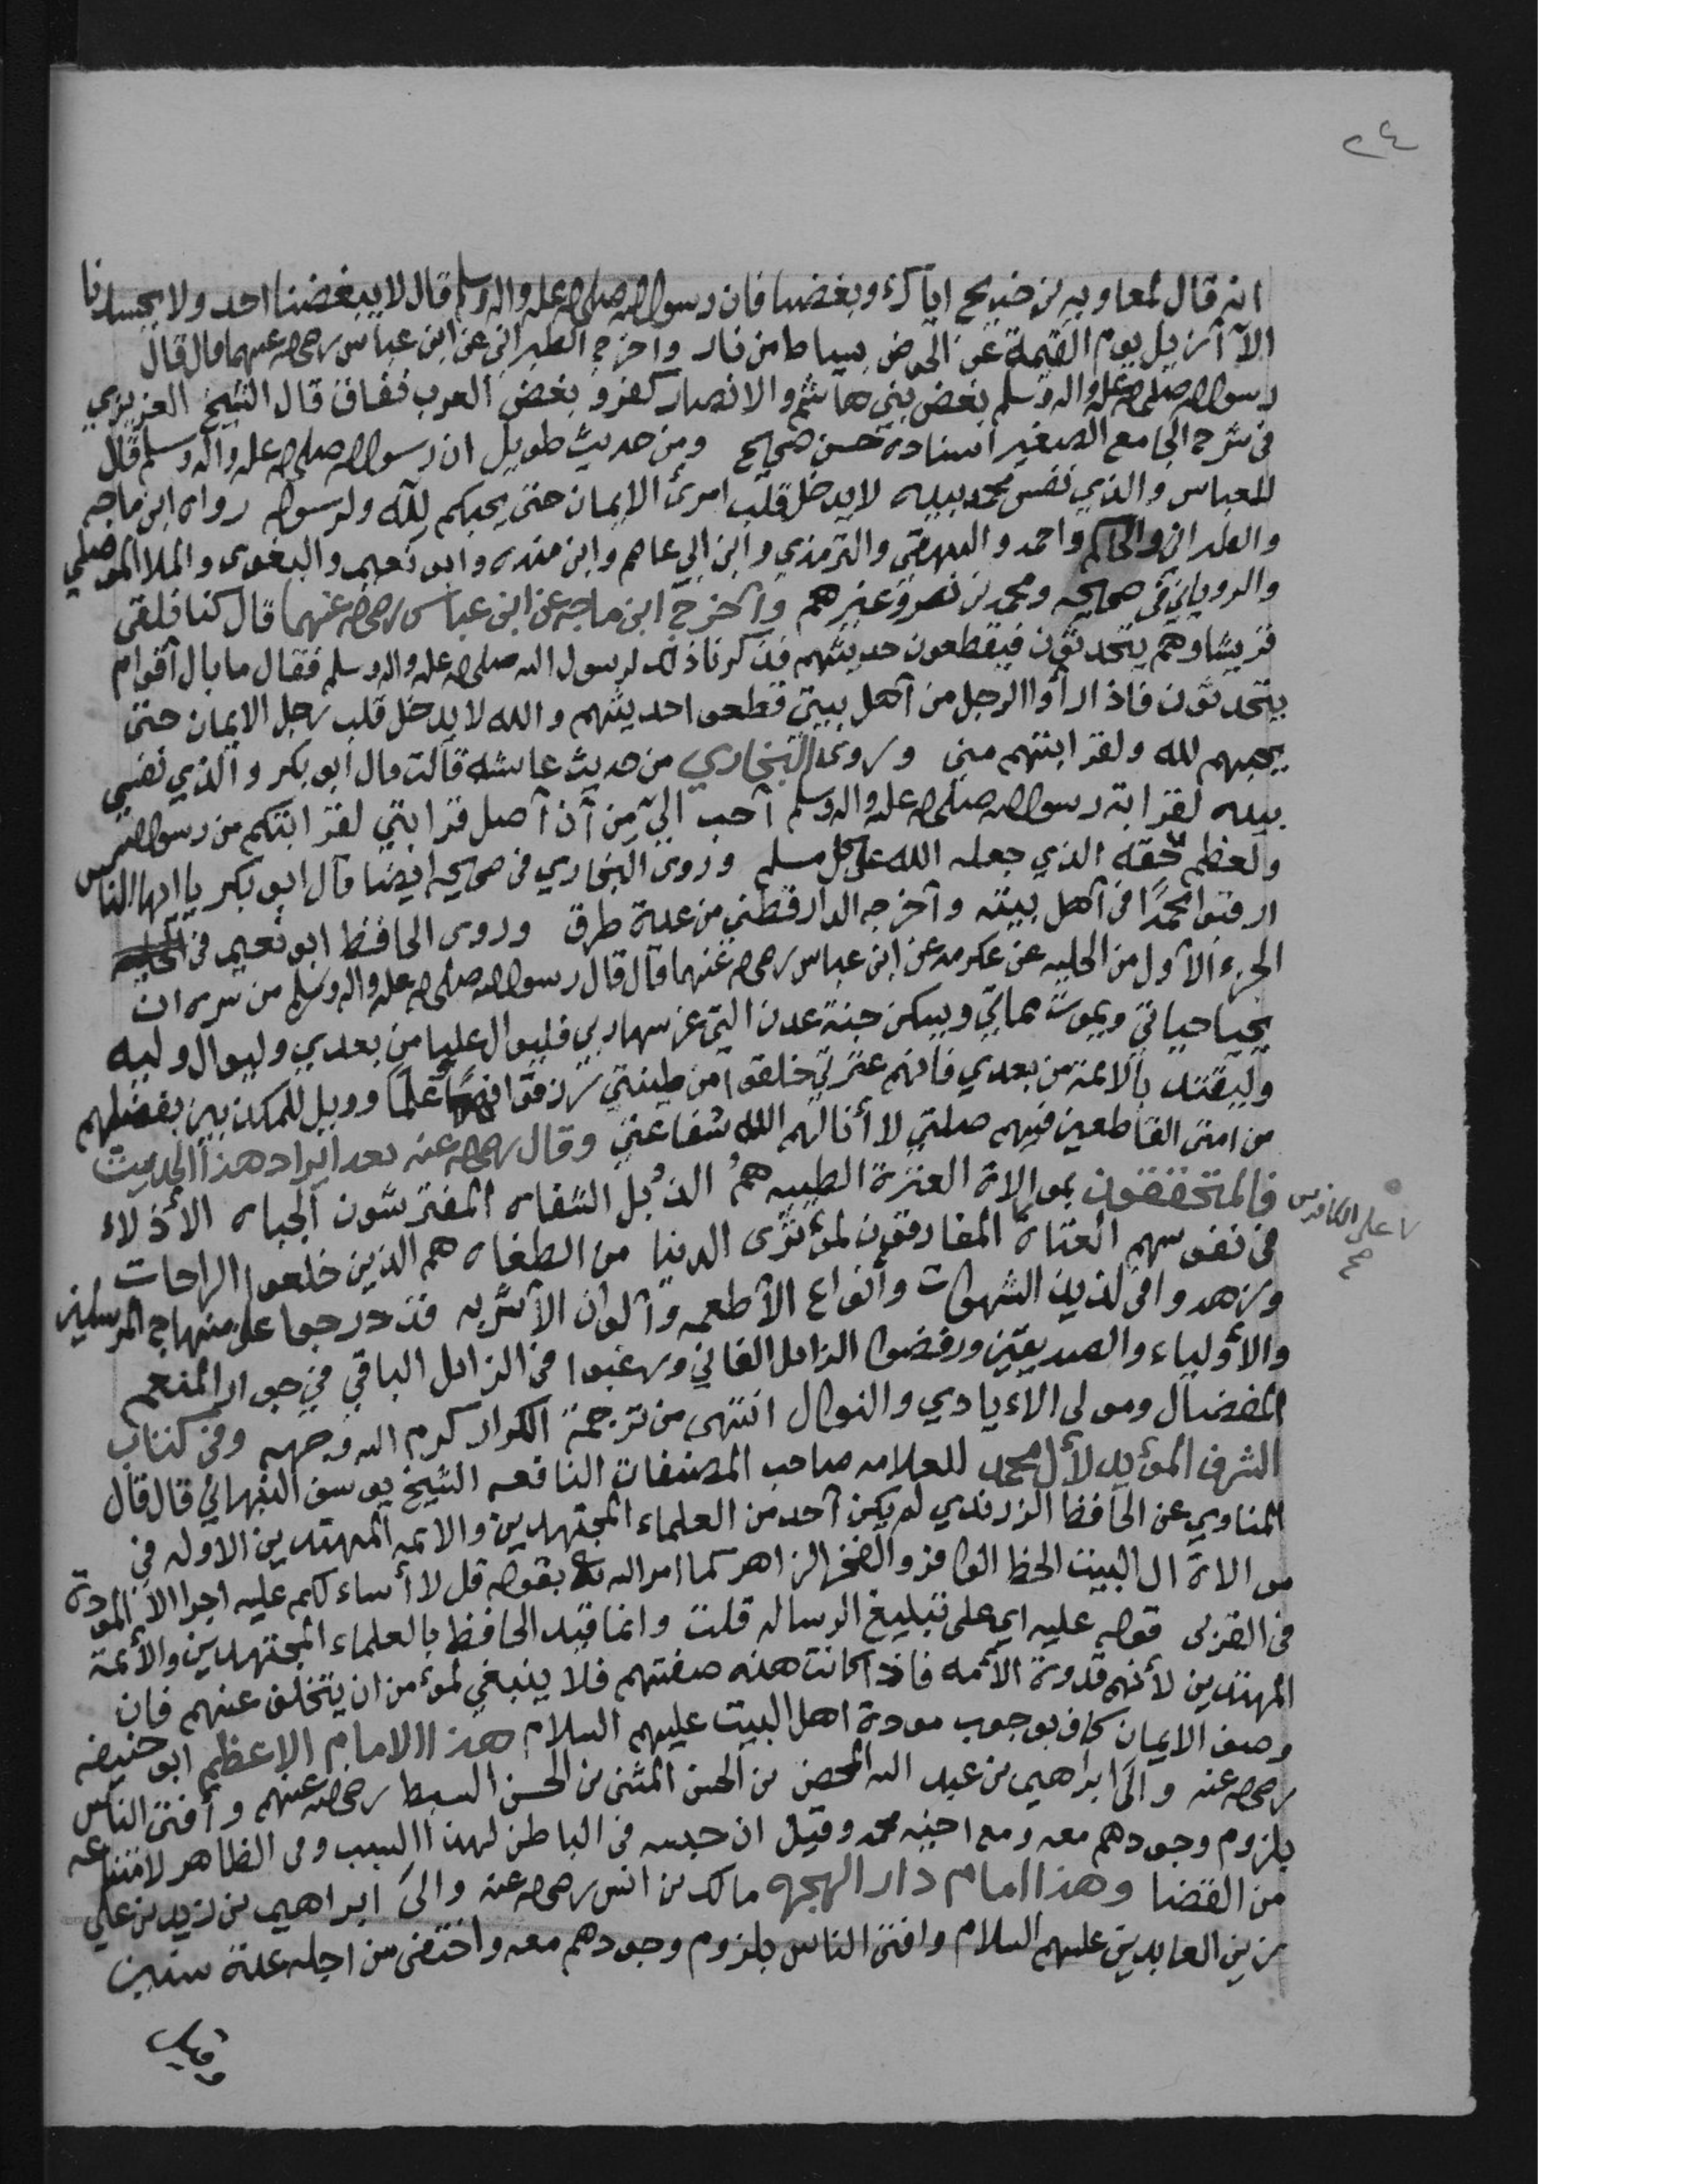 ٢٤
انه قال لمعاويه بن خديج اياك وبغضنا فان رسول الله صلى الله عليه واله وسلم قال لا يبغضنا احد ولا يحسدنا
الا أزيل يوم القيمة عن الحوض بسياط من نار وأخرج الطبراني عن ابن عباس رضي الله عنهما قال قال
رسول الله صلى الله عليه واله وسلم بغض بني هاشم والانصار كفر وبغض العرب نفاق قال الشيخ العزيزي
في شرح الجامع الصغير اسناده حسن صحيح ومن حديث طويل ان رسول الله صلى الله عليه واله وسلم قال
للعباس والذي نفس محمد بيده لا يدخل قلب امرئ الإيمان حتى يحبكم لله ولرسوله رواه ابن ماجه
والطبراني والحاكم واحمد والبيهقي والترمذي وابن ابي عاصم وابن منده وابو نعيم والبغوى والملا الموصلي
والروياني في صحيحه ومحمد بن نصر وغيرهم وأخرج ابن ماجه عن ابن عباس رضي الله عنهما قال كنا نلقى
قريشا وهم يتحدثون فيقطعون حديثهم فذكرنا ذلك لرسول الله صلى الله عليه واله وسلم فقال ما بال أقوام
يتحدثون فاذا رأوا الرجل من أهل بيتي قطعوا حديثهم والله لا يدخل قلب رجل الايمان حتى
يحبهم لله ولقرابتهم مني وروى البخاري من حديث عائشه قالت قال أبو بكر والذي نفسي
بيده لقرابة رسول الله صلى الله عليه واله وسلم أحب الي من أن أصل قرابتي لقرابتكم من رسول الله
ولعظم حقه الذي جعله الله على كل مسلم وروى البخاري في صحيحه ايضا قال ابو بكر يا ايها الناس
ارقبوا محمدًا في أهل بيته وأخرجه الدارقطني من عدة طرق وروى الحافظ ابو نعيم في الحلية
الجزء الأول من الحليه عن عكرمه عن ابن عباس رضي الله عنهما قال قال رسول الله صلى الله عليه واله وسلم من سره ان
يحيا حياتي ويموت مماتي ويسكن جنة عدن التي غرسها ربي فليوال عليا من بعدي وليوال وليه
وليقتد بالائمة من بعدي فانهم عترتي خلقوا من طينتي رزقوا فهمًا وعلمًا وويل للمكذبين بفضلهم
من امتي القاطعين فيهم صلتي لا أنالهم الله شفاعتي وقال رضي الله عنه بعد ايراد هذا الحديث
فالمتحققون بموالاة العترة الطيبه همُ الذُبل الشفاه المفترشون الجباه الأذلاء
في نفوسهم العتاة المفارقون لمؤثرى الدنيا من الطغاه هم الذين خلعوا الراحات
وزهدوا في لذيذ الشهوات وأنواع الأطعمه وألوان الأشربه فدرجوا على منهاج المرسلين
والأولياء والصديقين ورفضوا الزائل الفاني ورغبوا في الزائل الباقي في جوار المنعم
المفضال ومولى الأيادي والنوال انتهى من ترجمة الكرار كرم الله وجهه وفي كتاب
الشرف المؤبد لأل محمد للعلامه صاحب المصنفات النافعه الشيخ يوسف النبهاني قال قال
المناوي عن الحافظ الزرندي لم يكن أحد من العلماء المجتهدين والائمه المهتدين الا وله في
موالاة ال البيت الحظ الوافر والفخر الزاهر كما امر الله تع بقوله قل لا أساء لكم عليه اجرا الا المودة
في القربى قوله عليه اي على تبليغ الرساله قلت وانما قيد الحافظ بالعلماء المجتهدين والأئمة
المهتدين لأنهم قدوة الأمه فاذا كانت هذه صفتهم فلا ينبغي لمؤمن ان يتخلف عنهم فان
وصف الايمان كاف بوجوب مودة اهل البيت عليهم السلام هذا الامام الاعظم ابو حنيفه
رضي الله عنه والى ابراهيم بن عبد الله المحض بن الحسن المثنى بن الحسن السبط رضي الله عنهم وأفتى الناس
بلزوم وجودهم معه ومع اخيه محمد وقيل ان حبسه في الباطن لهذا السبب وفي الظاهر لامتناعه
من القضا وهذا امام دار الهجره مالك بن انس رضي الله عنه والى ابراهيم بن زيد بن علي
بن زين العابدين عليهم السلام وافتى الناس بلزوم وجودهم معه واختفى من اجله عدة سنين